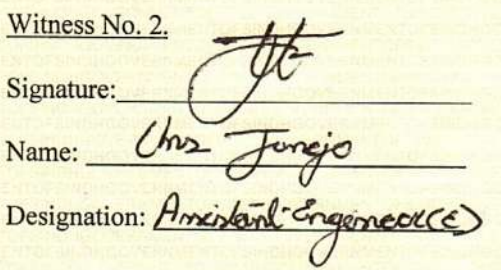 Witness No. 2.
Signature:
Name: Junejo
Designation: Assistant Engineer(E)